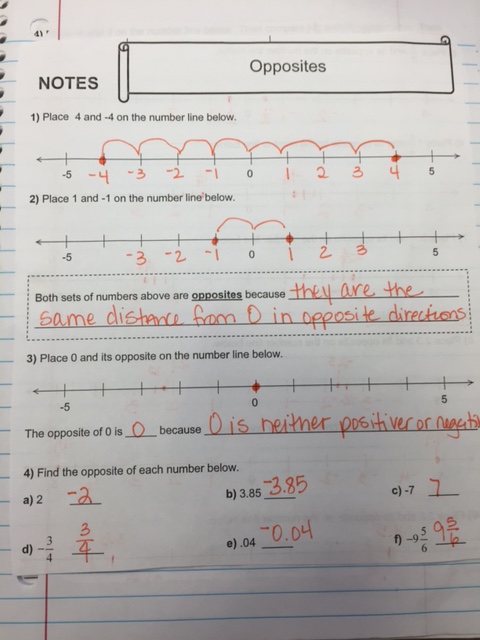 4)
NOTES
Opposites
1) Place 4 and -4 on the number line below.
-5 -4 -3 -2 -1 0 1 2 3 4 5
2) Place 1 and -1 on the number line below.
-5 -3 -2 -1 0 1 2 3 5
Both sets of numbers above are opposites because they are the
same distance from 0 in opposite directions
3) Place 0 and its opposite on the number line below.
-5 0 5
The opposite of 0 is 0 because 0 is neither positiver or negativ
4) Find the opposite of each number below.
a) 2 -2 b) 3.85 -3.85 c) -7 7
d) -3/4 3/4 e) .04 -0.04 f) -9 5/6 9 5/6